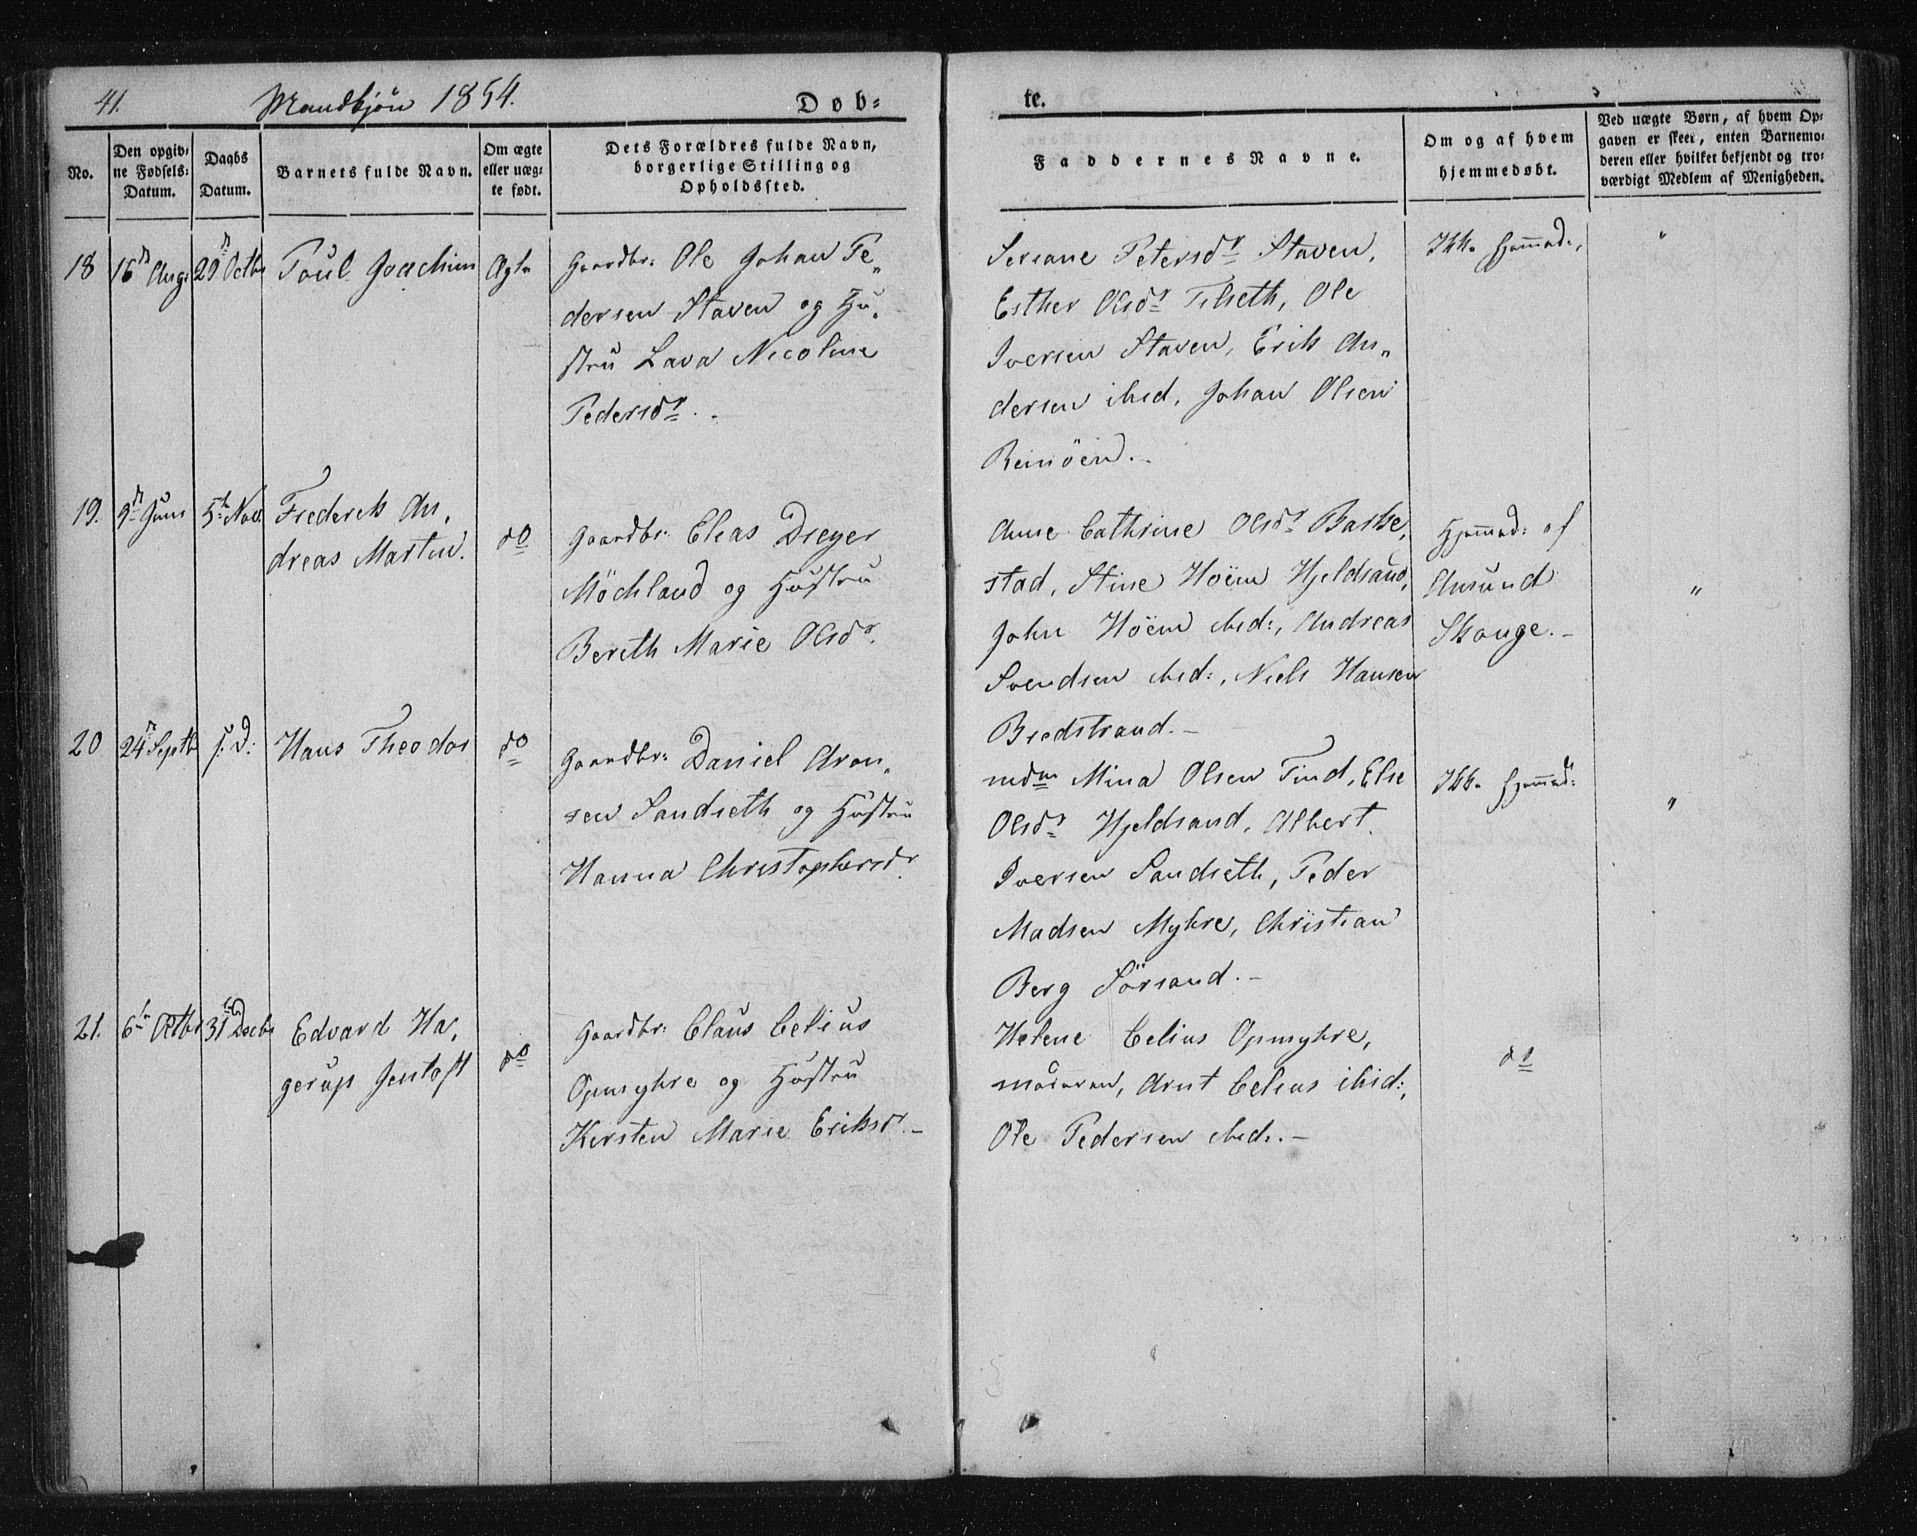 41. Mandkjön 1854. Døb=
te.
No.
Den opgiv=
ne Fødsels=
Datum.
Daabs
Datum.
Barnets fulde Navn.
Om ægte
eller uæg=
te født.
Dets Forældres fulde Navn,
borgerlige Stilling og
Opholdssted.
Faddernes Navne.
Om og af hvem
hjemmedøbt.
Ved uægte Børn, af hvem Op=
gaven er skeet, enten Barnemo=
deren eller hvilket bekjendt og tro=
værdigt Medlem af Menigheden.
18 16d Aug. 29d Octbr Poul Joachim Ægte
Gaardbr: Ole Johan Pe„
dersen Staven og Hu„
stru Lava Nicoline
Pedersdr.
Petersdr Staven,
Esther Olsdr Tilseth, Ole
Iversen Staven, Erik An„
dersen ibid, Johan Olsen
Reinöen.
Ikke hjemmed:
"
19. 9d Juni 5te Nov. Frederik An„
dreas Martin.
do
Gaardbr: Elias Dreyer
Möchland og Hustru
Bereth Marie Olsdr.
Anne Cathrine Olsdr Barke„
stad, Stine Höem Hjeldsand,
John Höem ibid:, Andreas
Svendsen ibid:, Niels Hansen
Bredstrand.
Hjemmed: af
Amund
Skouge.
"
20 24d Septb. s. D: Hans Theodor do
Gaardbr: Daniel Aron„
sen Sandseth og Hustru
Hanna Christophersdr.
mdm Mina Olsen Tind, Else
Olsdr Hjeldsand, Albert
Iversen Sandseth, Peder
Madsen Myhre, Christian
Berg Sörsand.
Ikke hjemmed:
"
21. 6te Octbr 31te Decbr Edvard Ha„
gerup Jentoft
do
Gaardbr: Claus Celius
Opmyhre og Hustru
Kirsten Marie Eriksdr.
Helene Celius Opmyhre,
moderen, Arnt Celius ibid:,
Ole Pedersen ibid:.
do